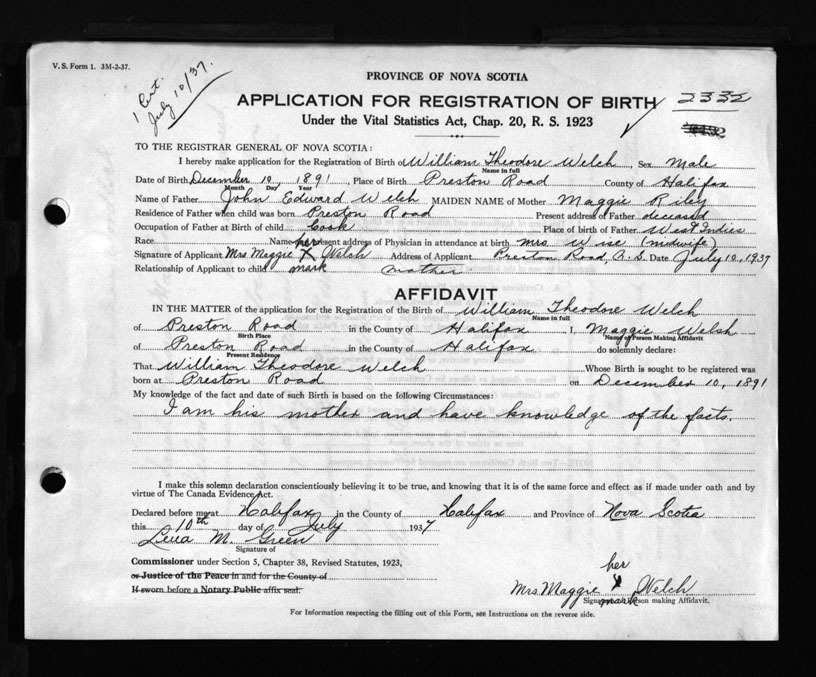 V. S. Form 1. 3M-2-37.
1 Cert.
July 10/37.
PROVINCE OF NOVA SCOTIA
APPLICATION FOR REGISTRATION OF BIRTH 2332
Under the Vital Statistics Act, Chap. 20, R. S. 1923
TO THE REGISTRAR GENERAL OF NOVA SCOTIA:
I hereby make application for the Registration of Birth of William Theodore Welch, Sex Male
Name in full
Date of Birth December 10, 1891, Place of Birth Preston Road County of Halifax
Month Day Year
Name of Father John Edward Welch MAIDEN NAME of Mother Maggie Riley
Residence of Father when child was born Preston Road Present address of Father deceased
Occupation of Father at Birth of child Cook Place of birth of Father West Indies
Race Name and present address of Physician in attendance at birth Mrs Wise (midwife)
her
Signature of Applicant Mrs Maggie X Welch Address of Applicant Preston Road, Date July 10, 1937
Relationship of Applicant to child mark mother
AFFIDAVIT
IN THE MATTER of the application for the Registration of the Birth of William Theodore Welch
Name in full
of Preston Road in the County of Halifax I, Maggie Welsh
Birth Place Name of Person Making Affidavit
of Preston Road in the County of Halifax do solemnly declare:
Present Residence
That William Theodore Welch Whose Birth is sought to be registered was
born at Preston Road on December 10, 1891
My knowledge of the fact and date of such Birth is based on the following Circumstances:
I am his mother and have knowledge of the facts.
I make this solemn declaration conscientiously believing it to be true, and knowing that it is of the same force and effect as if made under oath and by
virtue of The Canada Evidence Act.
Declared before me at Halifax in the County of Halifax and Province of Nova Scotia
this 10th day of July 1937
M. Green
Signature of
Commissioner under Section 5, Chapter 38, Revised Statutes, 1923,
or Justice of the Peace in and for the County of
If sworn before a Notary Public affix seal.
her
Mrs Maggie X Welch
mark
Signature of Person making Affidavit.
For Information respecting the filling out of this Form, see Instructions on the reverse side.